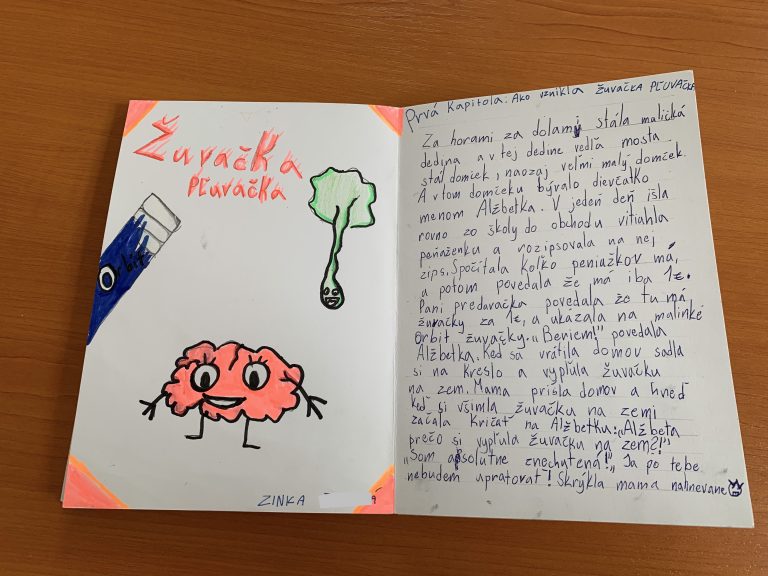 Žuvačka
PĽUVAČKA
Orbit
ZINKA
Prvá Kapitola. Ako vznikla žuvačka PĽUVAČKA
Za horami za dolami stála maličká
dedina a v tej dedine vedľa mosta
stál domček, naozaj veľmi malý domček.
A v tom domčeku bývalo dievčatko
menom Alžbetka. V jedeň deň išla
rovno zo školy do obchodu vitiahla
peňaženku a rozipsovala na nej
zips. Spočítala koľko peniažkov má,
a potom povedala že má iba 1€.
Pani predavačka povedala že tu má
žuvačky za 1€, a ukázala na malinké
orbit žuvačky. „Beriem!" povedala
Alžbetka. Keď sa vrátila domov sadla
si na kreslo a vypľula žuvačku
na zem. Mama prišla domov a hneď
keď si všimla žuvačku na zemi
začala kričať na Alžbetku: „Alžbeta
prečo si vypľula žuvačku na zem?!"
„Som apsolútne znechutená!" „Ja po tebe
nebudem upratovať! Skrýkla mama nahnevane